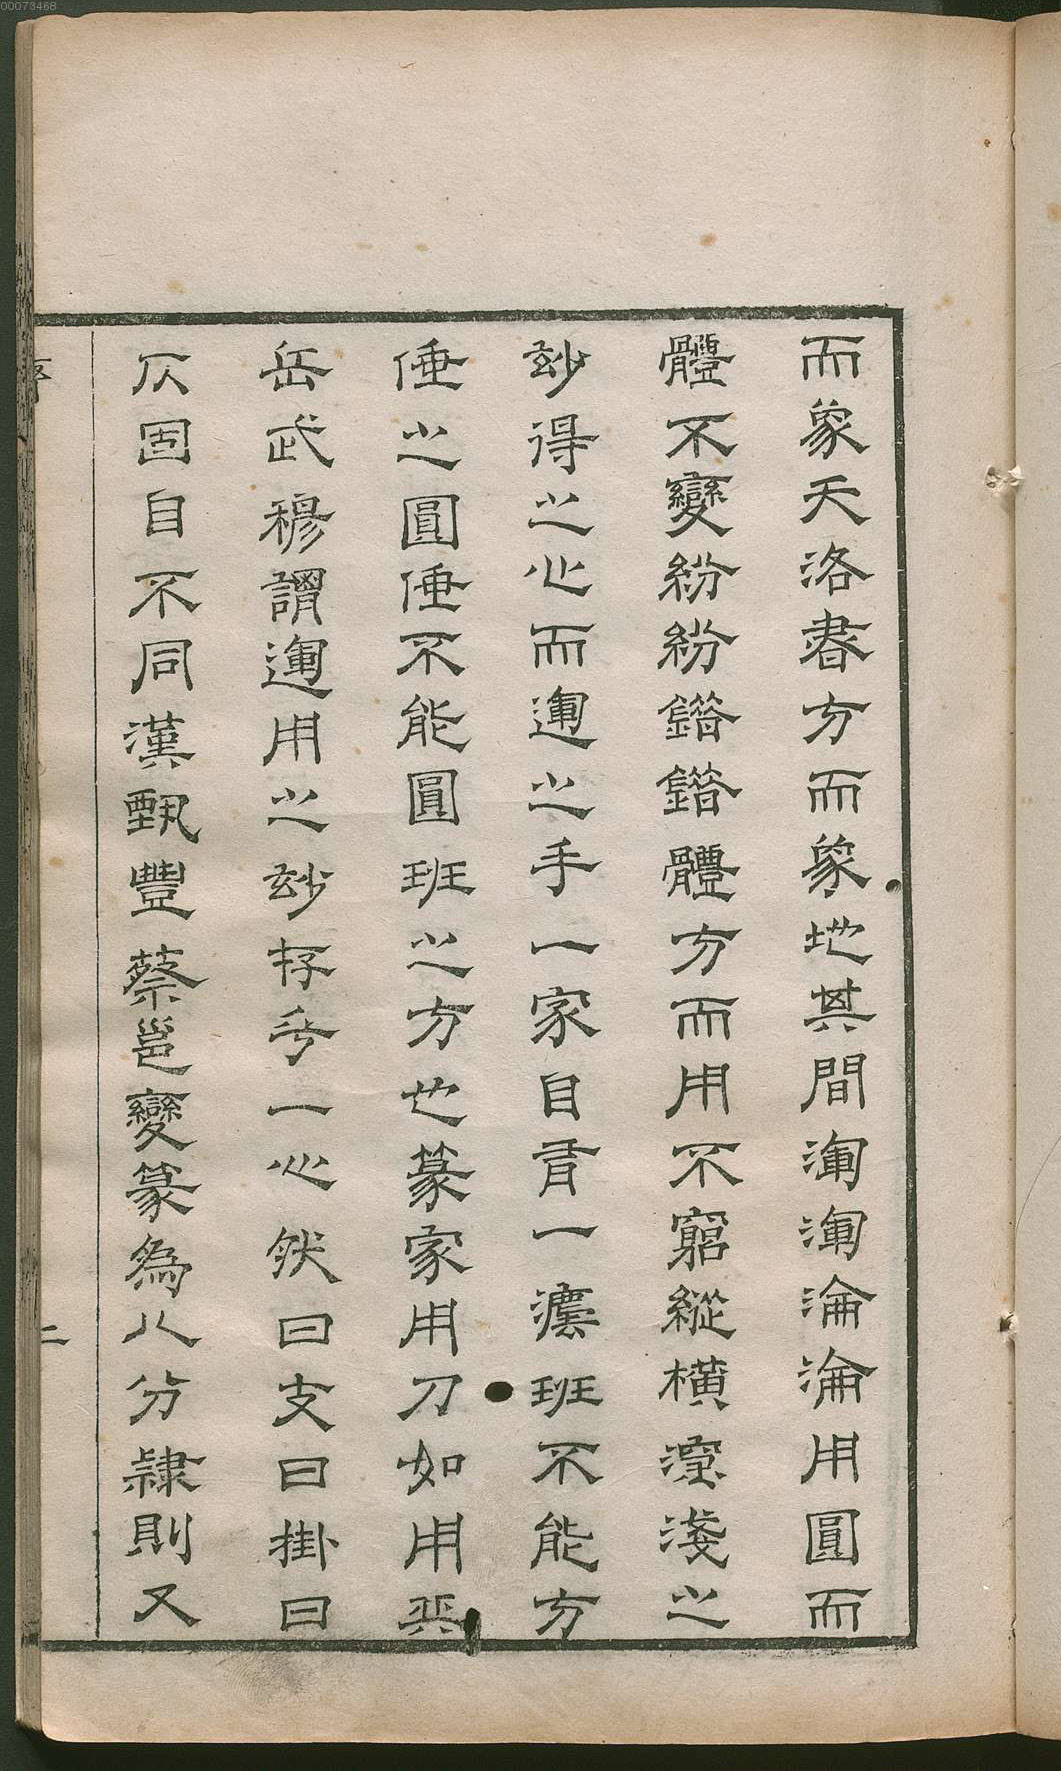 00073468
而象天洛書方而象地其間渾渾淪淪用圓而
體不變紛紛錯錯體方而用不窮縱橫深淺之
玅得之心而運之手一家自有一灋班不能方
倕之圓倕不能圓班之方也篆家用刀如用兵
岳武穆謂運用之玅存乎一心然曰支曰掛曰
仄固自不同漢甄豐蔡邕變篆為八分隸則又
序
二